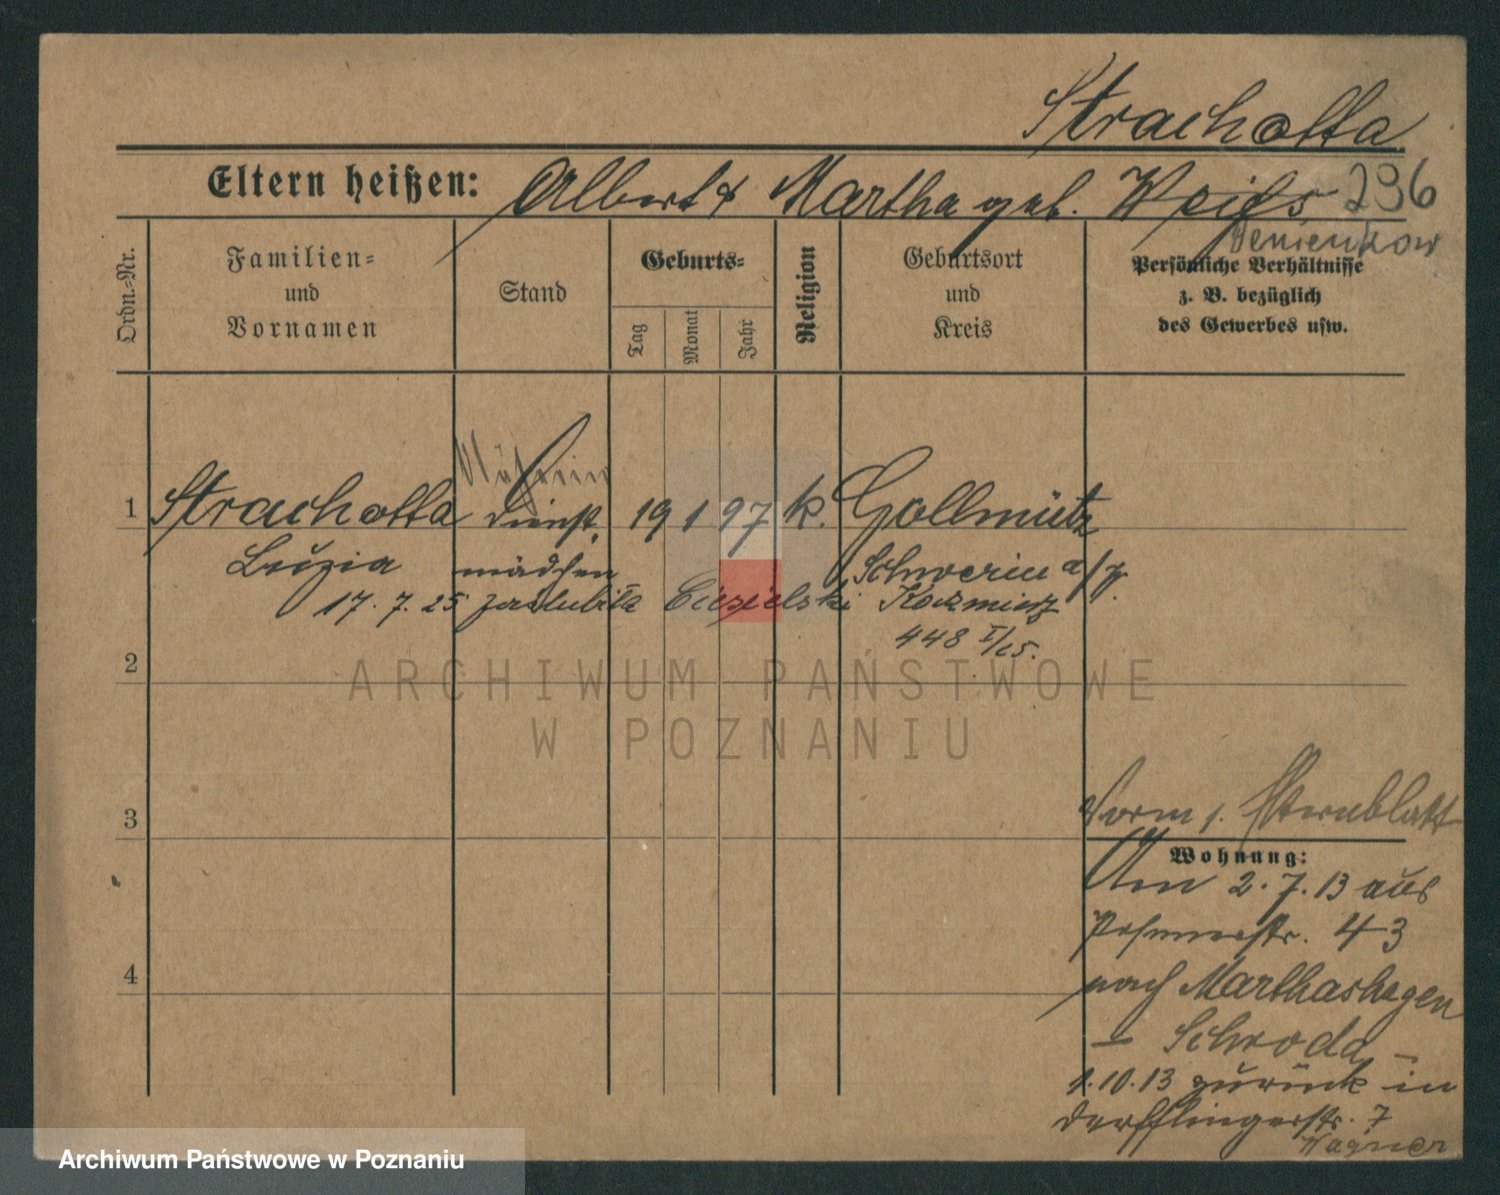 Strachotta.
Eltern heißen: Albert & Martha geb. Weiß 296
Ordn.-Nr.
Familien-
und
Vornamen
Stand
Geburts-
Tag
Monat
Jahr
Religion
Geburtsort
und
Kreis
Persönliche Verhältnisse
z. B. bezüglich
des Gewerbes usw.
Näherin
1 Strachotta Dienst, 19 1 97 k. Gollmütz
Luzia mädchen Schwerin a/W.
17. 7. 25 zaślubiła Ciesielski Kazmierz
448 I/25.
2
3
4
Vorm 1. Elternblatt
Wohnung:
Am 2. 7. 13 aus
Posenerstr. 43
nach Marthashagen
- Schroda -
1.10.13 zurück in
Derfflingerstr. 7
Wagner
ARCHIWUM PAŃSTWOWE
W POZNANIU
Archiwum Państwowe w Poznaniu